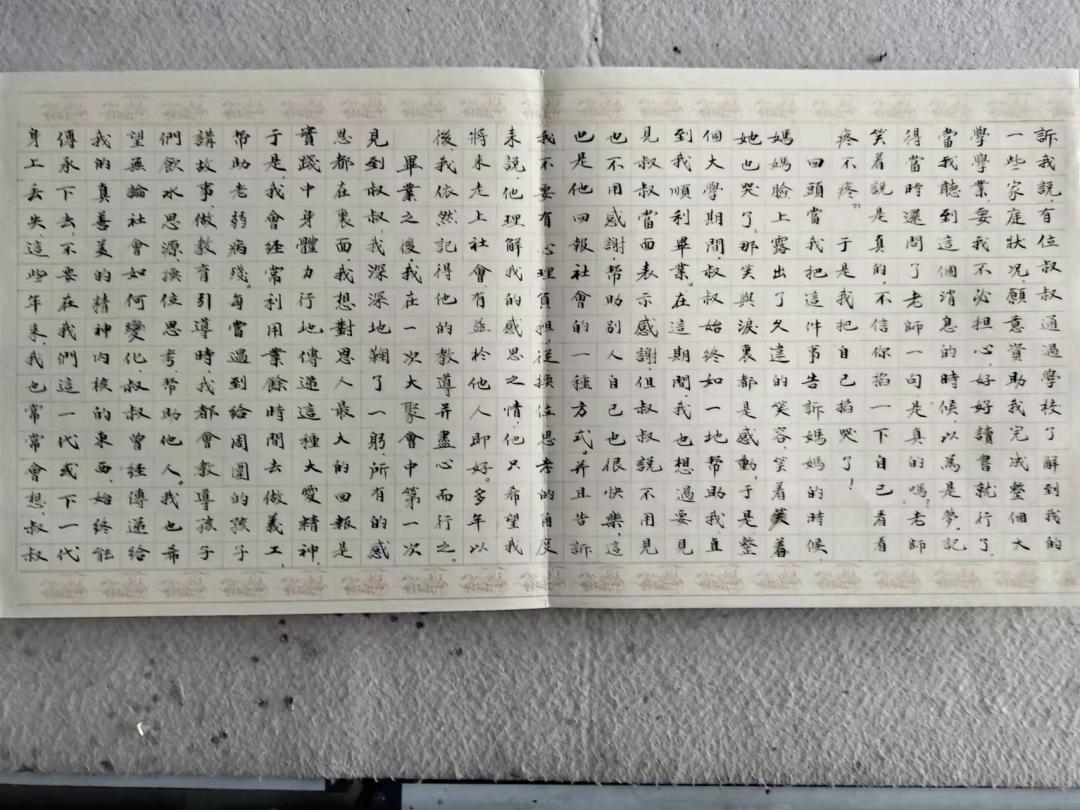 訴我說,有位叔叔通過學校了解到我的
一些家庭狀况,願意資助我完成整個大
學學業,要我不必担心,好好讀書就行了。
當我聽到這個消息的時候,以爲是夢,記
得當時還問了老師一句是真的嗎?老師
笑着說是真的,不信你掐一下自己看看
疼不疼?”于是我把自己掐哭了!
回頭當我把這件事告訴媽媽的時候,
媽媽臉上露出了久違的笑容笑着笑着
她也哭了,那笑與淚裏都是感動,于是整
個大學期間,叔叔始終如一地帮助我直
到我順利畢業。在這期間,我也想過要見
見叔叔當面表示感謝,但叔叔說不用見
也不用感謝,帮助别人自己也很快樂,這
也是他回報社會的一種方式。并且告訴
我不要有心理負担,從換位思考的角度
来說他理解我的感恩之情,他只希望我
將来走上社會有益於他人即好。多年以
後我依然記得他的教導并盡心而行之。
畢業之後,我在一次大聚會中第一次
見到叔叔,我深深地鞠了一躬,所有的感
恩都在裏面,我想對恩人最大的回報是
實踐中身體力行地傳遞這種大愛精神,
于是,我會經常利用業餘時間去做義工,
帮助老弱病殘,每當遇到給周圍的孩子
講故事,做教育引導時,我都會教導孩子
們飲水思源,換位思考,帮助他人。我也希
望無論社會如何變化,叔叔曾經傳遞給
我的真善美的精神内核的東西,始終能
傳承下去,不要在我們這一代或下一代
身上丢失,這些年来,我也常常會想,叔叔